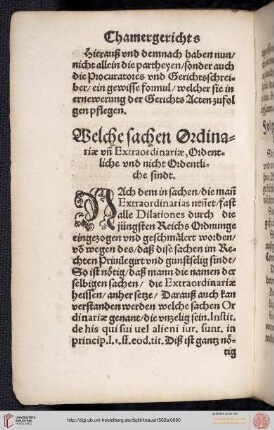 Chamergerichts
Hierauß vnd demnach haben nun/
nicht allein die partheyen/sonder auch
die Procuratores vnd Gerichtsschrei-
ber/ein gewisse formul/welcher sie in
ernewerung der Gerichts Acten zufol
gen pflegen.
Welche sachen Ordina-
riæ vñ Extraordinariæ, Ordent-
liche vnd nicht Ordentli-
che sindt.
NAch dem in sachen/die mañ
Extraordinarias neñet/fast
alle Dilationes durch die
jüngsten Reichs Ordnunge
eingezogen vnd geschmälert worden/
võ wegen des/daß dise sachen im Re-
chten Priuilegirt vnd gunstselig sinde/
So ist nötig/daß mann die namen der
selbigen sachen/die Extraordinariæ
heissen/anher setze/Darauß auch kan
verstanden werden welche sachen Or
dinariæ genant/die vnzelig sein. Instit.
de his qui sui vel alieni iur. sunt. in
princip. l. 1. ff. eod. tit. Diß ist gantz nö
tig
http://digi.ub.uni-heidelberg.de/diglit/knaust1562a/0030